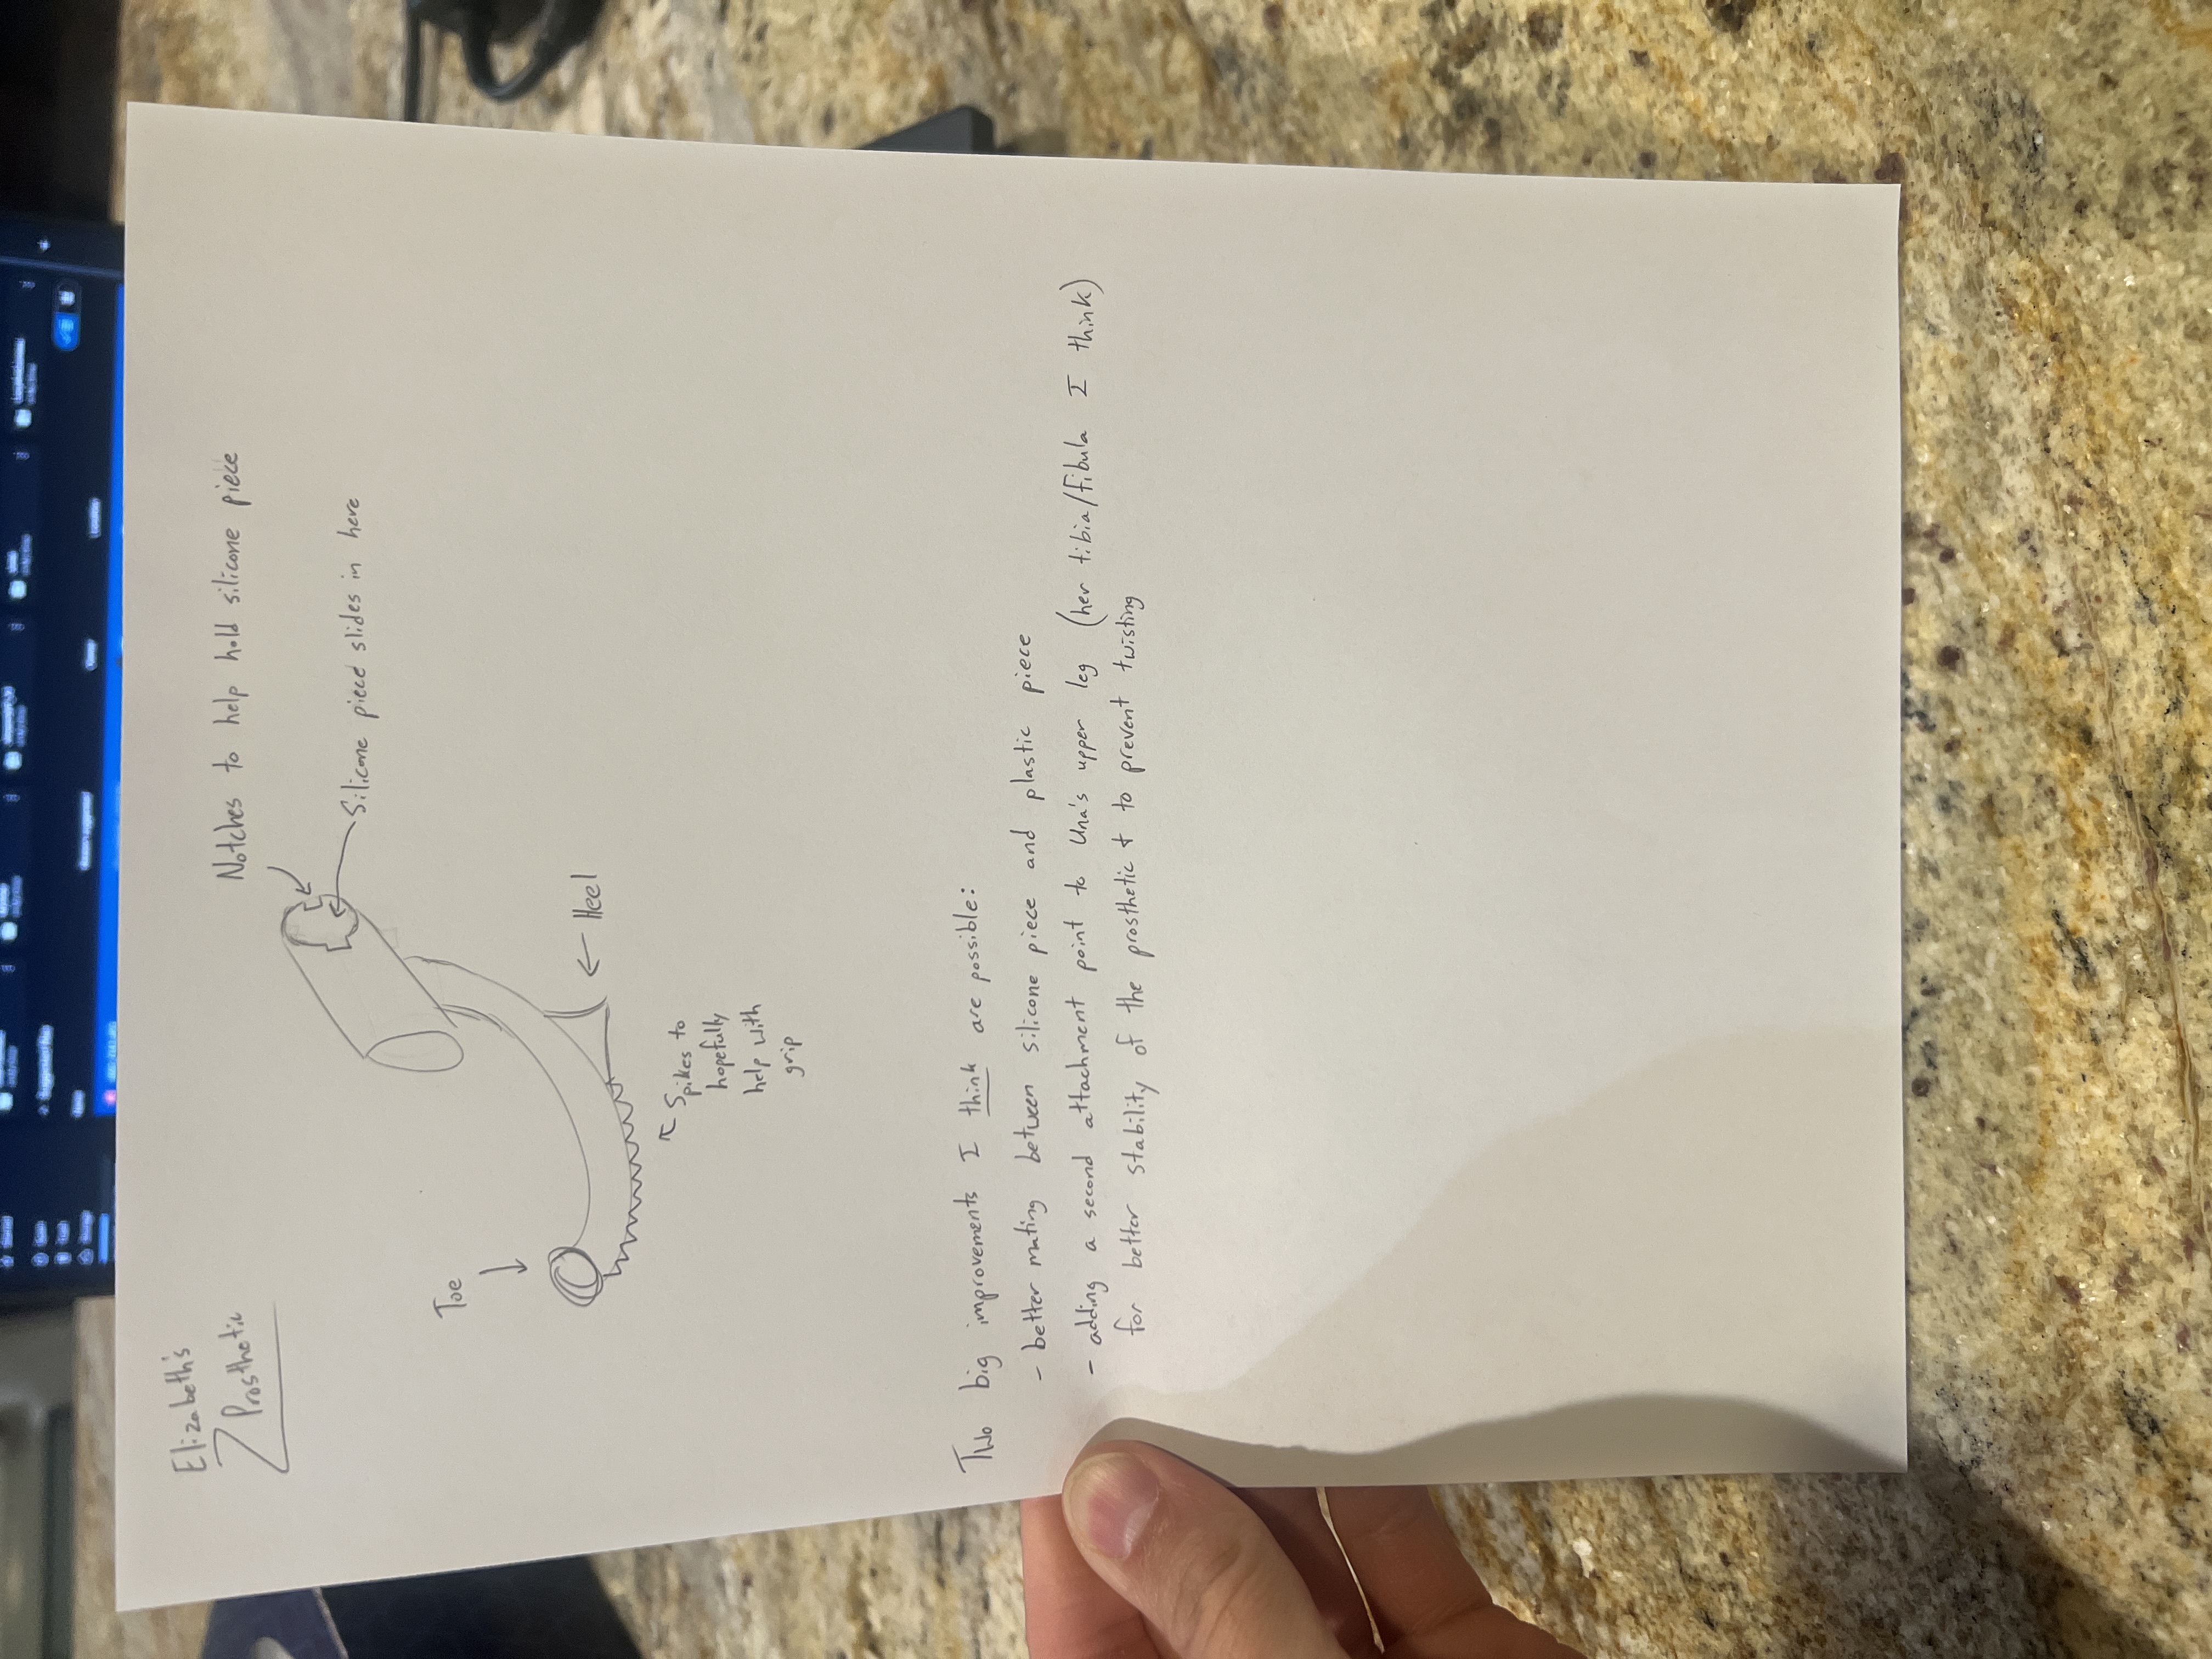 Elizabeth's
Prosthetic
Notches to help hold silicone piece
Silicone piece slides in here
Toe
Heel
Spikes to
hopefully
help with
grip
Two big improvements I think are possible:
- better mating between silicone piece and plastic piece
- adding a second attachment point to Una's upper leg (her tibia/fibula I think)
for better stability of the prosthetic & to prevent twisting